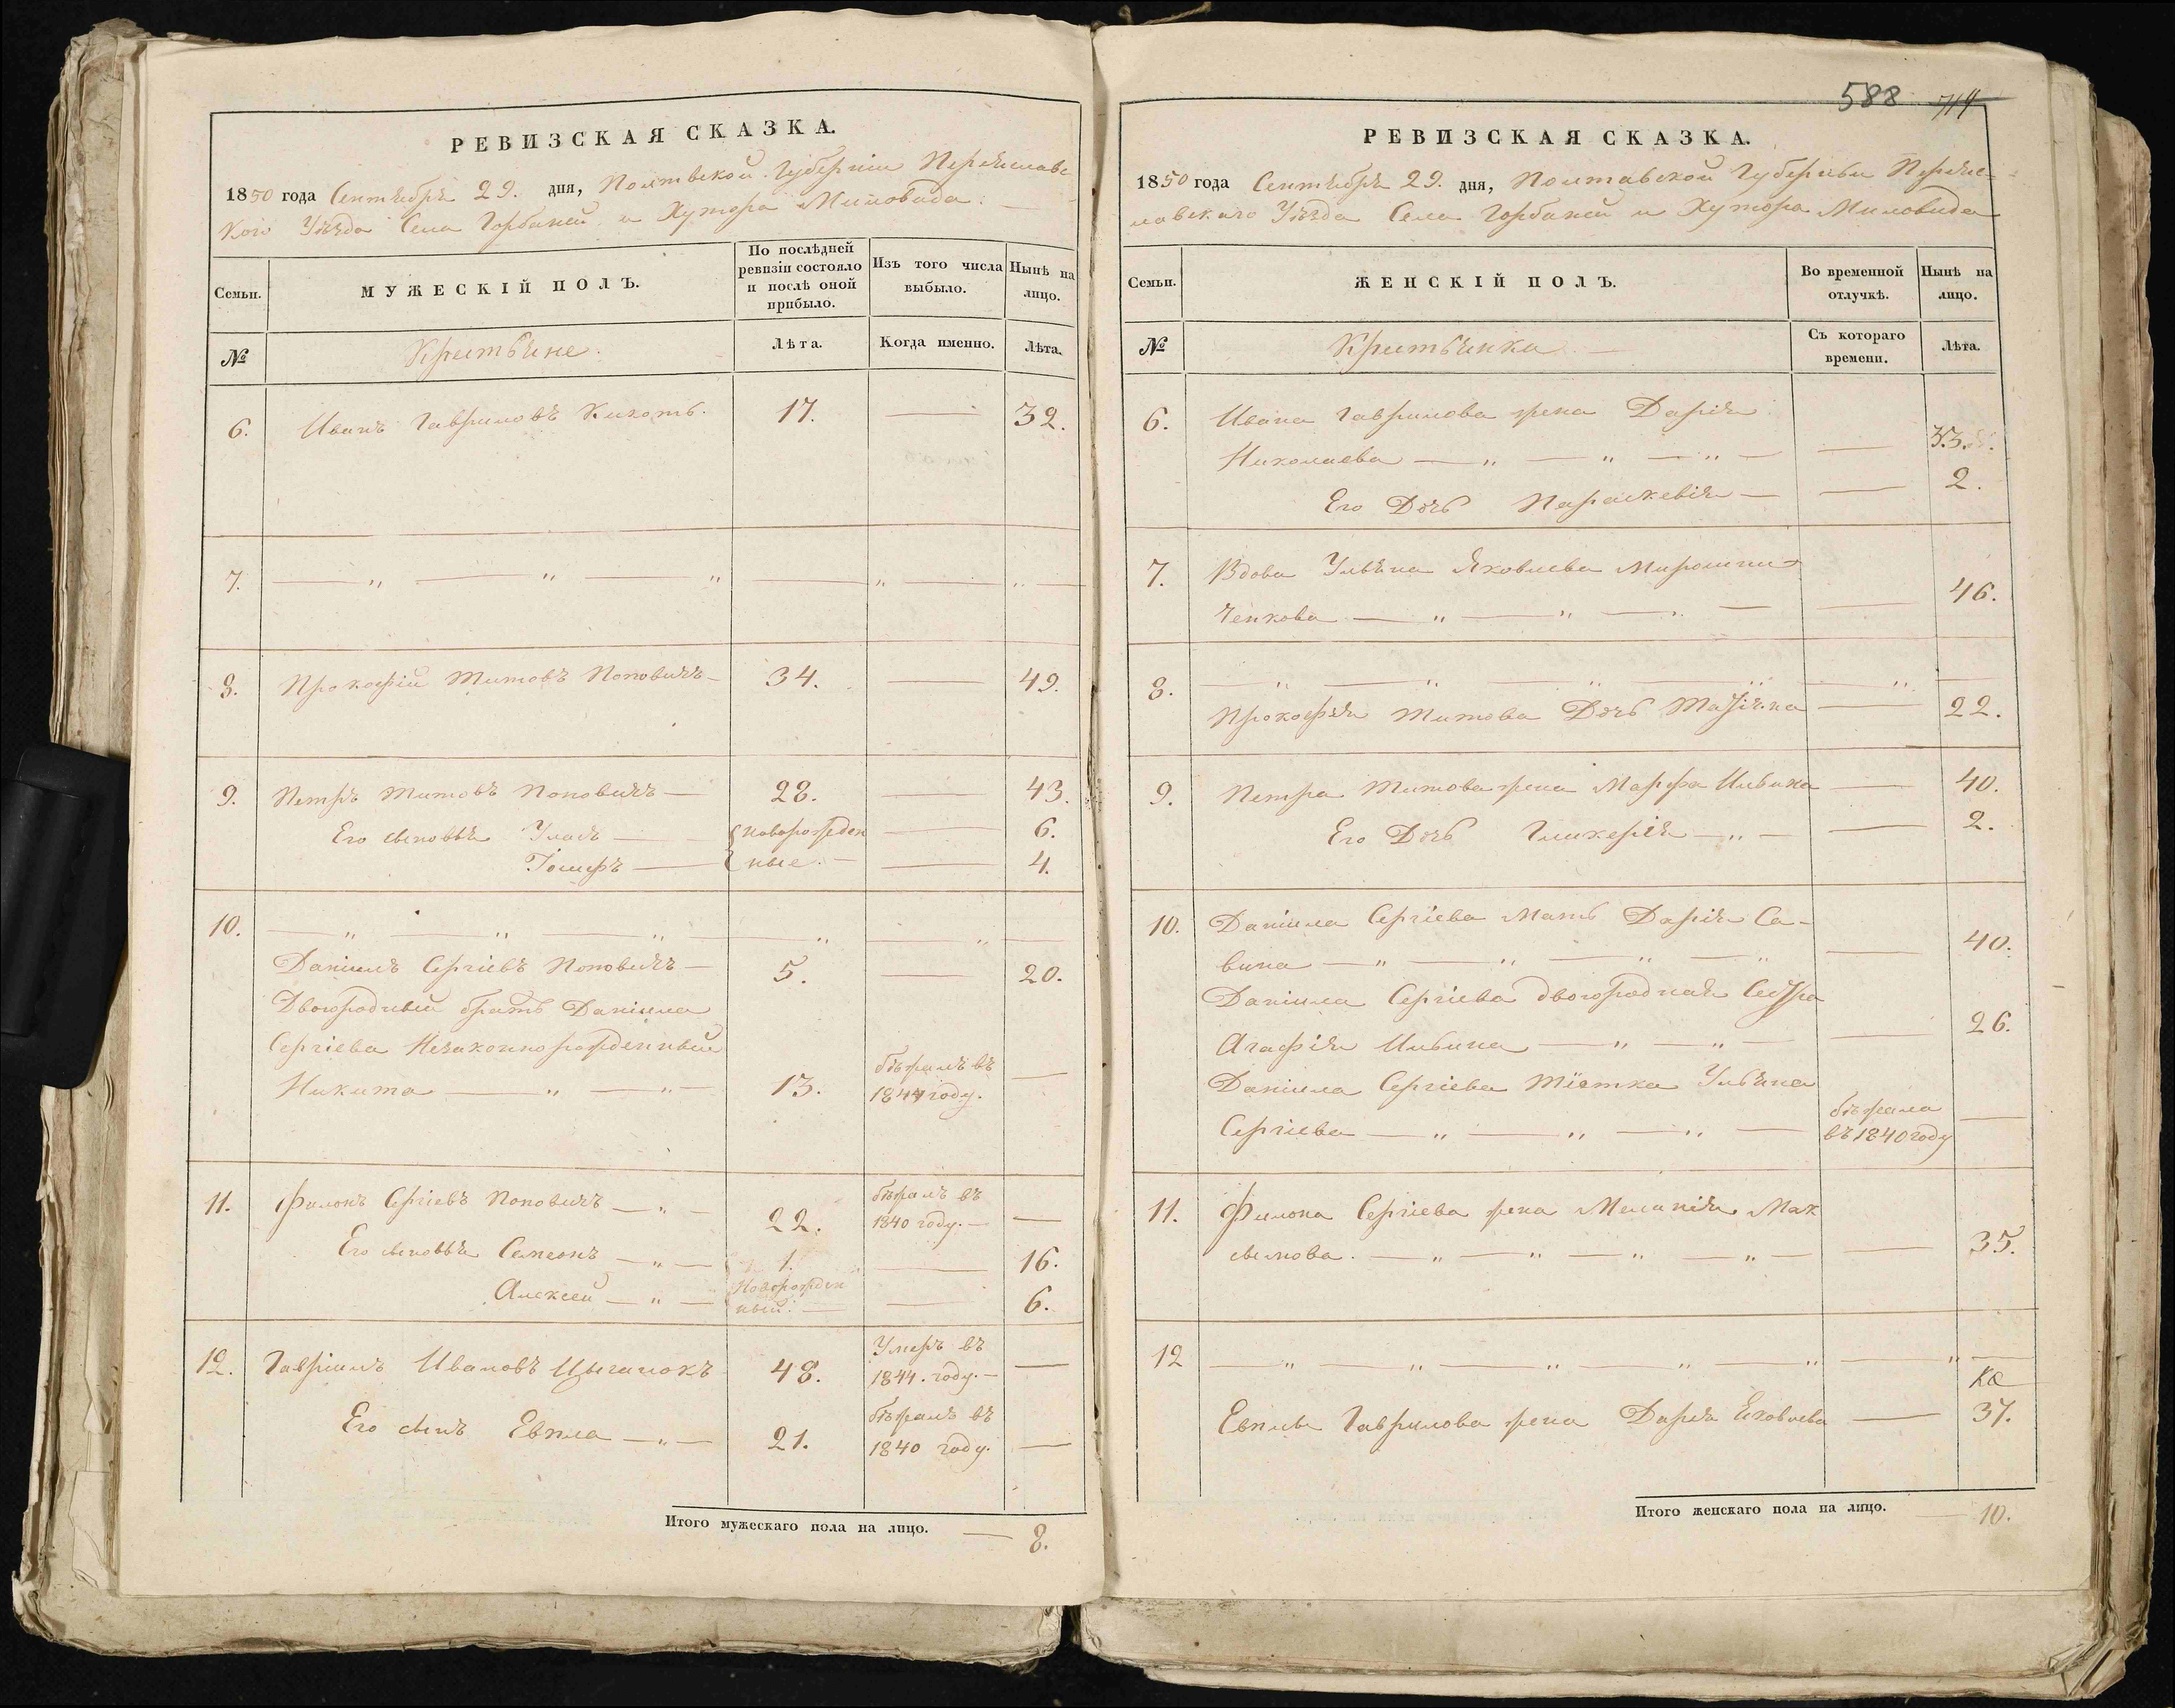 РЕВИЗСКАЯ СКАЗКА.
1850 года Сентября 29. дня, Полтавской Губерніи Переяславс
кого Уѣзда Села Горбаней и Хутора Миловида.
Семьи.
МУЖЕСКІЙ ПОЛЪ.
По послѣдней ревизіи состояло и послѣ оной прибыло.
Изъ того числа выбыло.
Нынѣ на лицо.
№
Крестьяне.
Лѣта.
Когда именно.
Лѣта.
6. Иванъ Гавриловъ Кихоть. 17. — 32.
7. — „ — „ — „ — „ — „ —
8. Прокофій Титовъ Поповичъ — 34. — 49.
9. Петръ Титовъ Поповичъ — 28. — 43.
Его сыновья Уласъ — новорожден — 6.
— ные. — — 4.
10. — „ — „ — „ — „ — „ —
Даніилъ Сергіевъ Поповичъ — 5. — 20.
Двоюродный братъ Даніила
Сергіева Незаконнорожденный
Никита — „ — „ — 13. бѣжалъ въ 1844 году. —
11. Филонъ Сергіевъ Поповичъ — „ — 22. бѣжалъ въ 1840 году. — —
Его сыновья Семеонъ — „ — 1. — 16.
Алексей — „ — Новорожден ный. — — 6.
12. Гавріилъ Ивановъ Цыганокъ 48. Умеръ въ 1844. году. — —
Его сынъ Евпла — „ — 21. бѣжалъ въ 1840 году. —
Итого мужескаго пола на лицо. — 8.
588 714
РЕВИЗСКАЯ СКАЗКА.
1850 года Сентября 29. дня, Полтавской Губерніи Переяс-
лавскаго Уѣзда Села Горбаней и Хутора Миловида
Семьи.
ЖЕНСКІЙ ПОЛЪ.
Во временной отлучкѣ.
Нынѣ на лицо.
№
Крестьянки. —
Съ котораго времени.
Лѣта.
6. Ивана Гаврилова жена Дарія
Николаева — „ — „ — „ — — 33.
Его Дочь Параскевія — — 2.
7. Вдова Ульяна Яковлева
ченкова — „ — „ — „ — — 46.
8. — „ — „ — „ — „ — „ —
Прокофія Титова Дочь Татіяна — 22.
9. Петра Титова жена Марфа Ильина — 40.
Его Дочь Гликерія — „ — — 2.
10. Даніила Сергіева Мать Дарія Са-
вина — „ — „ — „ — „ — 40.
Даніила Сергіева двоюродная Сестра
Агафія Ильина — „ — „ — — 26.
Даніила Сергіева Тіотка Ульяна
Сергіева — „ — „ — „ — бѣжала въ 1840 году —
11. Филона Сергіева жена Меланія Мак
сымова. — „ — „ — „ — „ — — 35.
12 — „ — „ — „ — „ — „ — „ —
Евплы Гаврилова жена Дарія Яковлева — 37.
Итого женскаго пола на лицо. — 10.